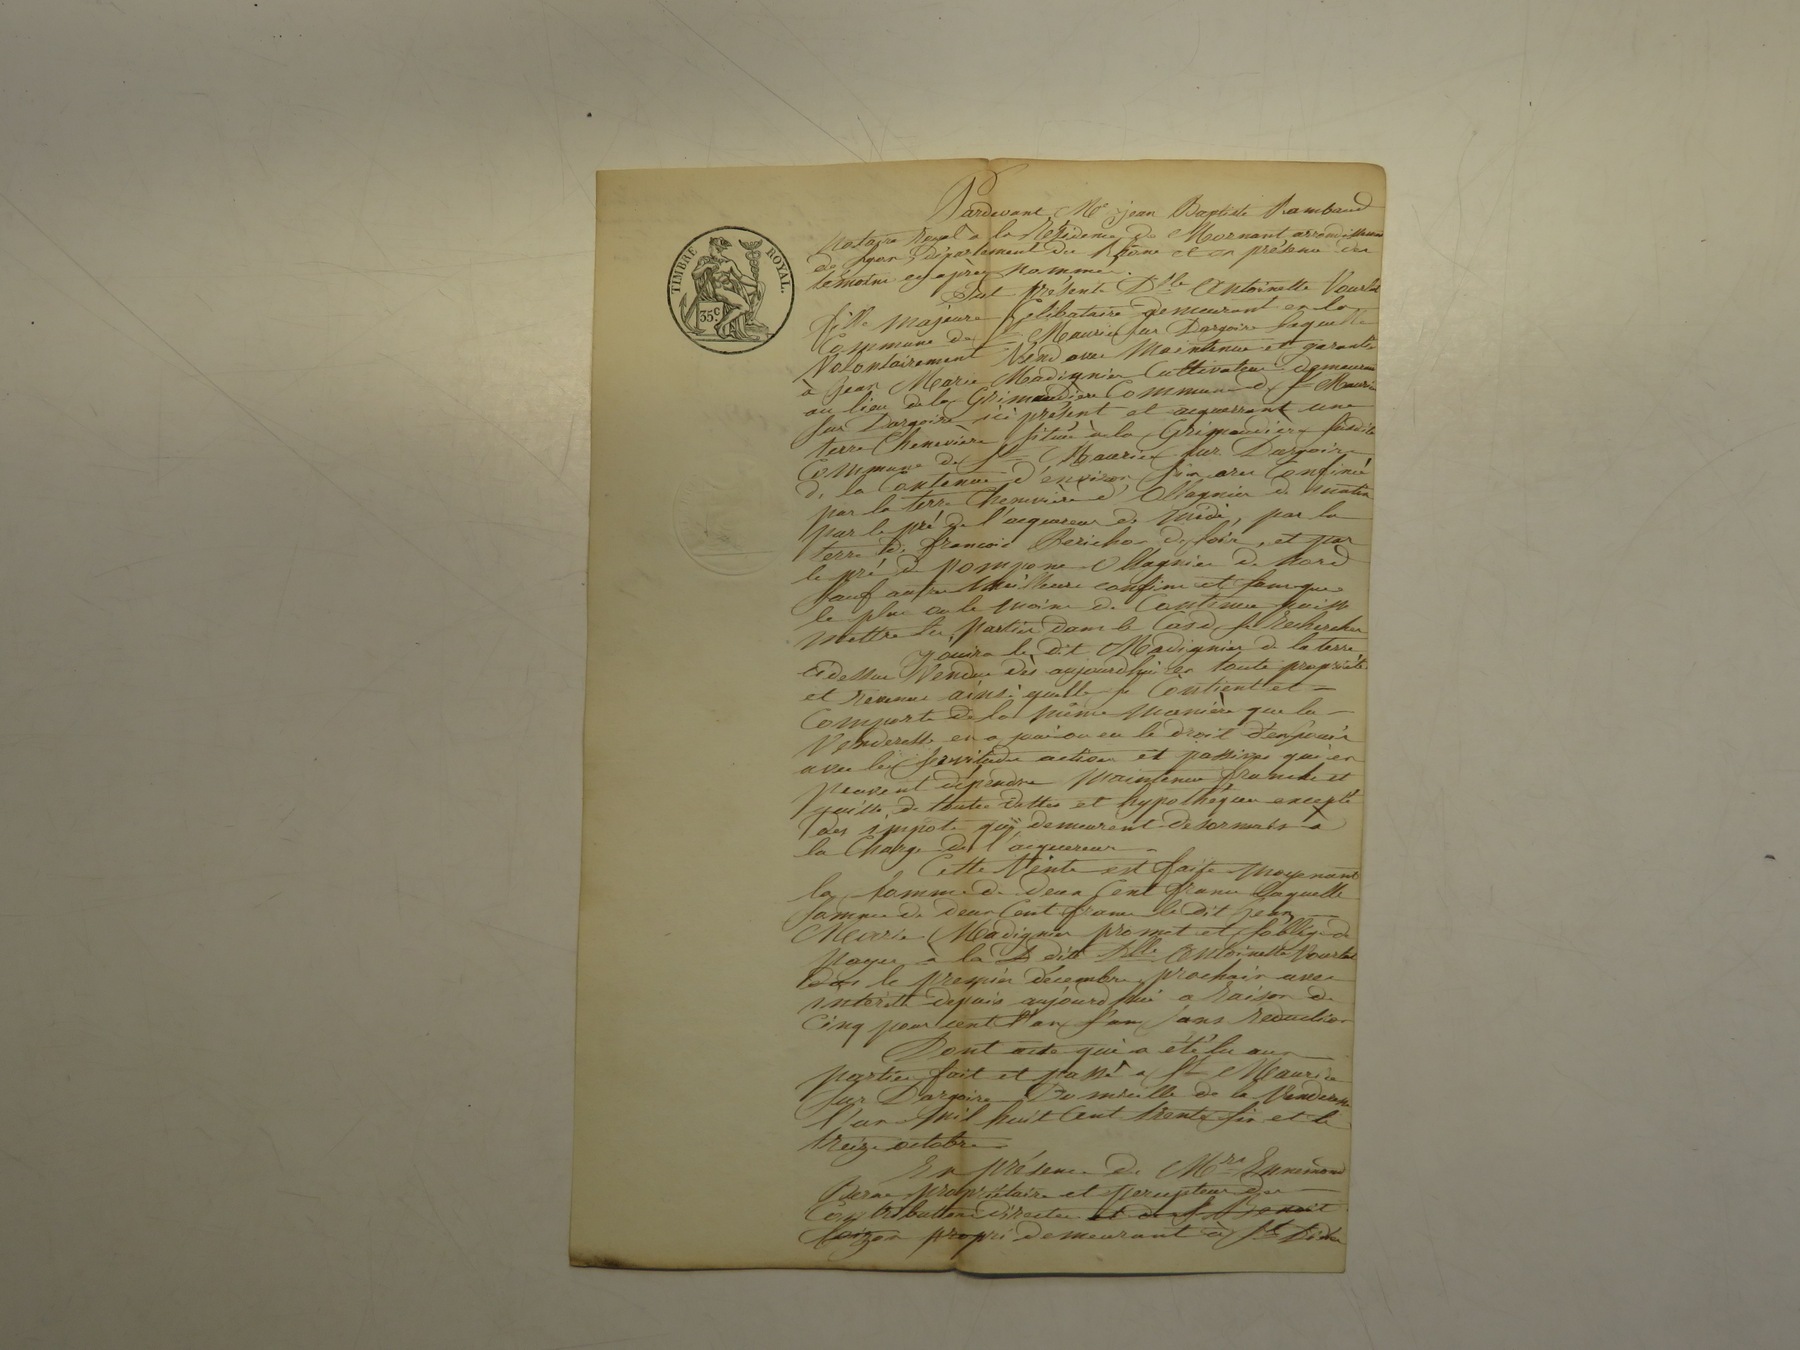 TIMBRE ROYAL.
35c
Pardevant Me jean Baptiste Rambaud
Notaire Royal a la Résidence de Mornant arrondissement
de Lyon Département du Rhône et en présence des
témoins cy après nommés.
Fut présente Dlle Antoinette
fille majeure Célibataire demeurant en la
Commune de St Maurice sur Dargoire laquelle
Volontairement Vend avec Maintenue et garantie
à jean Marie Madignier Cultivateur demeurant
au lieu de la Grimaudière Commune de St Maurice
sur Dargoire ici présent et acquerrant une
terre Chenevière située à la Grimaudière susdite
Commune de St Maurice sur Dargoire
de la Contenue d'environ six ares Confinée
par la terre Chenevière d' Ollagnier de matin
par le pré de l'acquereur de midi, par la
terre de françois de soir, et par
le pré de pompone Ollagnier de Nord
sauf autres Meilleurs confins et sans que
le plus ou le moins de Contenue puisse
mettre les parties dans le Cas de se Rechercher
jouira le dit Madignier de la terre
cidessus Vendue dès aujourdhui en toute propriété
et Revenus ainsi quelle se Contient et
Comporte de la même manière que la
Venderesse en a joui ou eu le droit d'en jouir
avec les servitudes actives et passives qui en
peuvent dépendre Maintenue franche et
quitte de toutes dettes et hypothèques excepté
des impots qui demeurent désormais a
la Charge de l'acquereur
Cette Vente est faite Moyenant
la somme de deux Cent francs Laquelle
somme de deux Cent francs le dit jean
Marie Madignier promet et s'oblige de
payer a la dite Dlle Antoinette
le premier décembre prochain avec
intérêts depuis aujourdhui a Raison de
Cinq pour cent l'an sans Reduction
Dont acte qui a été lu aux
parties fait et passé a St Maurice
sur Dargoire Domicille de la Venderesse
l'an Mil huit Cent trente six et le
treize octobre
En présence de Mrs Ennemond
propriétaire et percepteur des
Contributions directes et de St
demeurant à St Didier